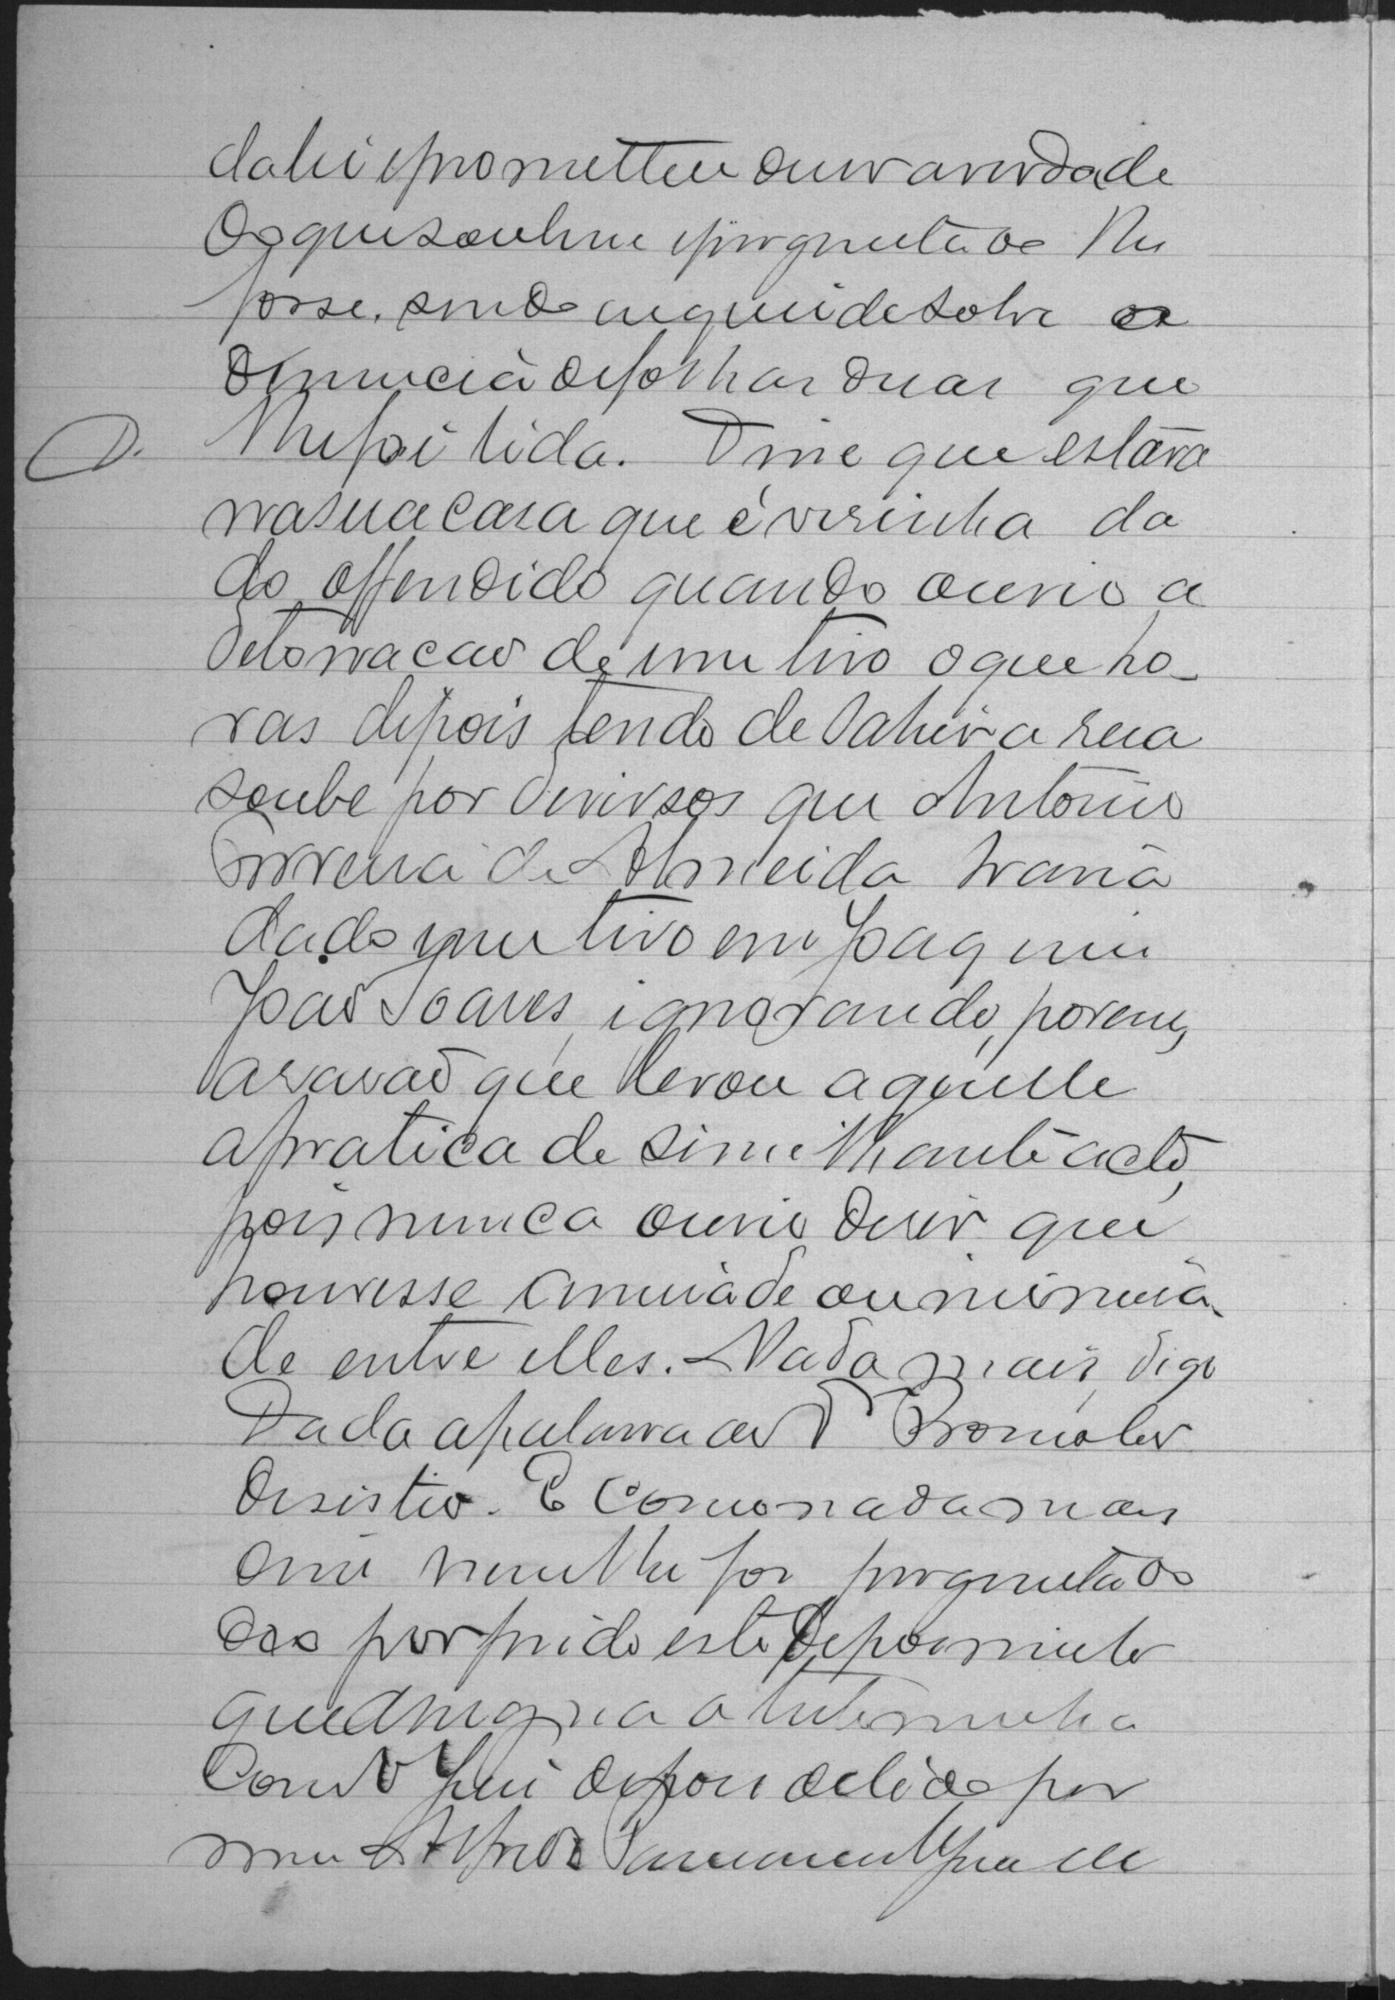 da lei e prometteu diser a verdade
do que soubere e perguntado lhe
fosse. sendo inquirido sobre a
denuncia de folhas duas que
D. lhe foi lida. Disse que estava
na sua casa que é visinha da
do offendido quando ouvio a
detonacao de um tiro o que ho-
ras depois tendo de sahir a rua
soube por diversos que Antonio
Correia de Almeida havia
dado um tiro em Joaquim
João Soares, ignorando, porem,
a rasão que levou aquelle
a pratica de similhante acto,
pois nunca ouvio diser que
houvesse amisade ou inimisa-
de entre elles. Nada mais digo
Dada a palavra ao Dr Promotor
desistio. E como nada mais
disse nem lhe foi perguntado
deo por findo este depoimento
que assigna a testemunha
com o Juiz depois de lido por
mim Alfredo